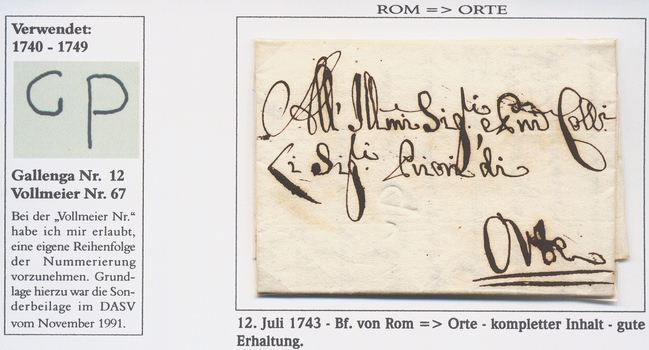 ROM => ORTE
Verwendet:
1740 - 1749
GP
Gallenga Nr. 12
Vollmeier Nr. 67
Bei der „Vollmeier Nr.“
habe ich mir erlaubt,
eine eigene Reihenfolge
der Nummerierung
vorzunehmen. Grund-
lage hierzu war die Son-
derbeilage im DASV
vom November 1991.
All' Illmi Sig.i e
Li Sig.i Priori di
GP
Orte
12. Juli 1743 - Bf. von Rom => Orte - kompletter Inhalt - gute
Erhaltung.